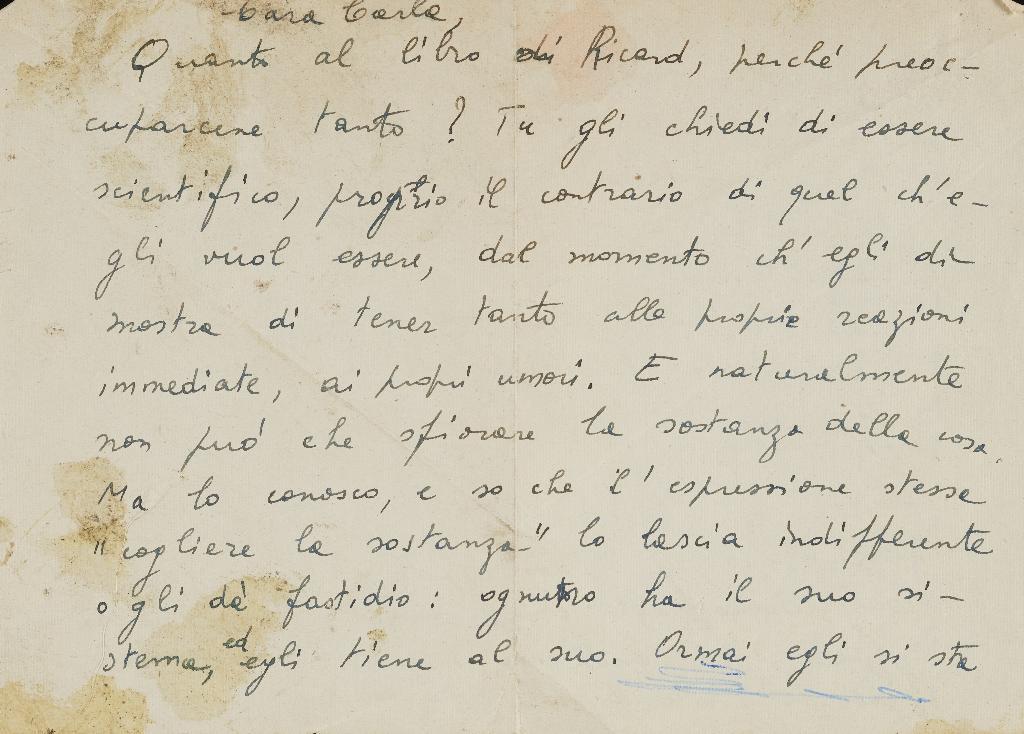 Cara Carla,
Quanto al libro di Ricard, perché preoc-
cuparcene tanto? Tu gli chiedi di essere
scientifico, proprio il contrario di quel ch'e-
gli vuol essere, dal momento ch'egli di-
mostra di tener tanto alle proprie reazioni
immediate, ai propri umori. E naturalmente
non può che sfiorare la sostanza della cosa.
Ma lo conosco, e so che l'espressione stessa
"cogliere la sostanza" lo lascia indifferente
o gli dà fastidio: ognuno ha il suo si-
stema, ed egli tiene al suo. Ormai egli si sta